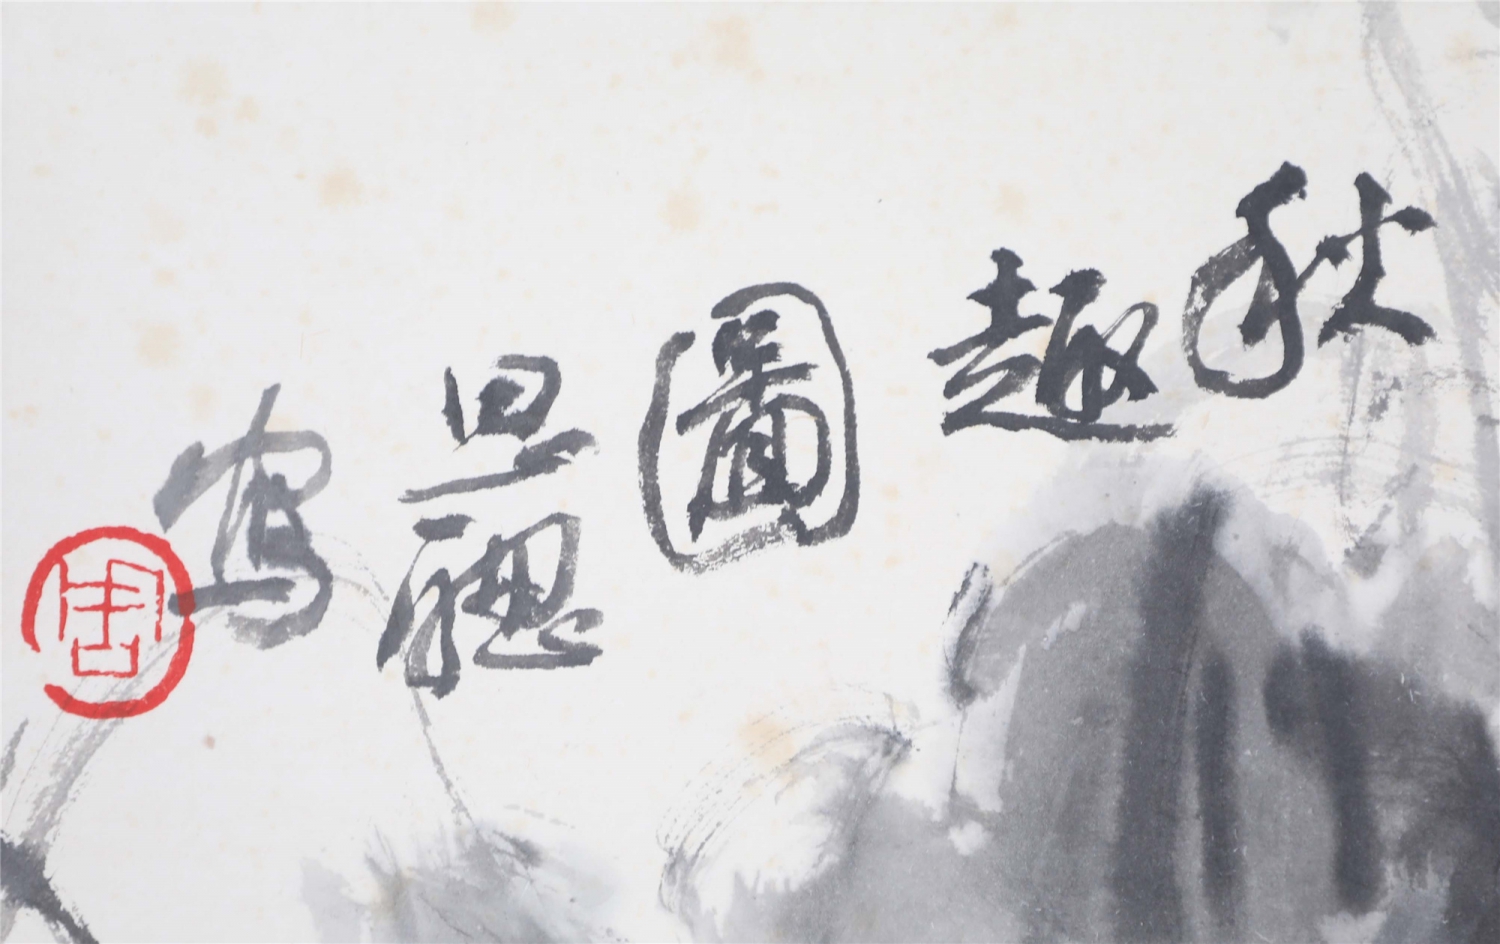 秋趣圖思聰寫
周